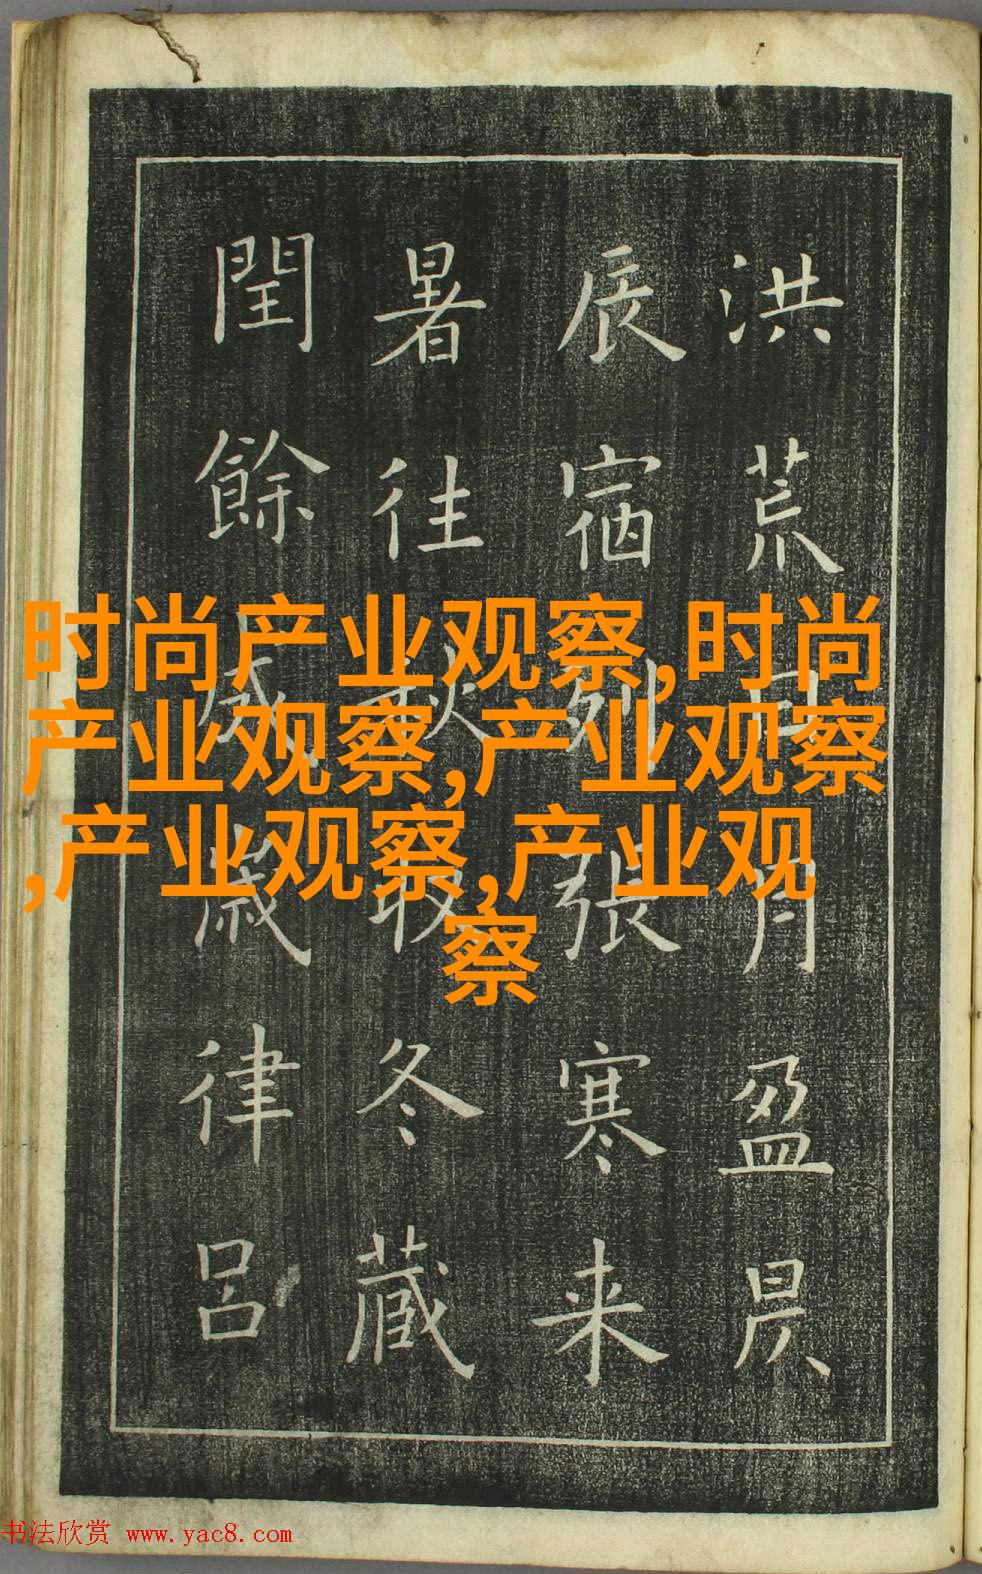 洪荒日月盈昃
辰宿列張寒来
暑往秋收冬藏
閏餘成歲律呂
时尚产业观察,时尚
产业观察,产业观察
,产业观察,产业观
察
书法欣赏 www.yac8.com